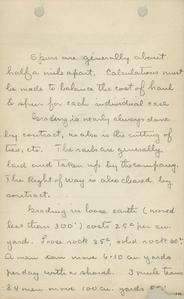 Spurs are generally about
half a mile apart. Calculations must
be made to balance the cost of haul
& spur for each individual case
Grading is nearly always done
by contract, as also is the cutting of
ties, etc. The rails are generally
laid and taken up by the company.
The Right of Way is also cleared by
contract.
Grading in loose earth (moved
less than 300') costs 25¢ per cu.
yard. Loose rock 35¢, solid rock
A man can move 6-10 cu yards
per day with a shovel. 3 mule team
& 4 men move 100 cu. yards